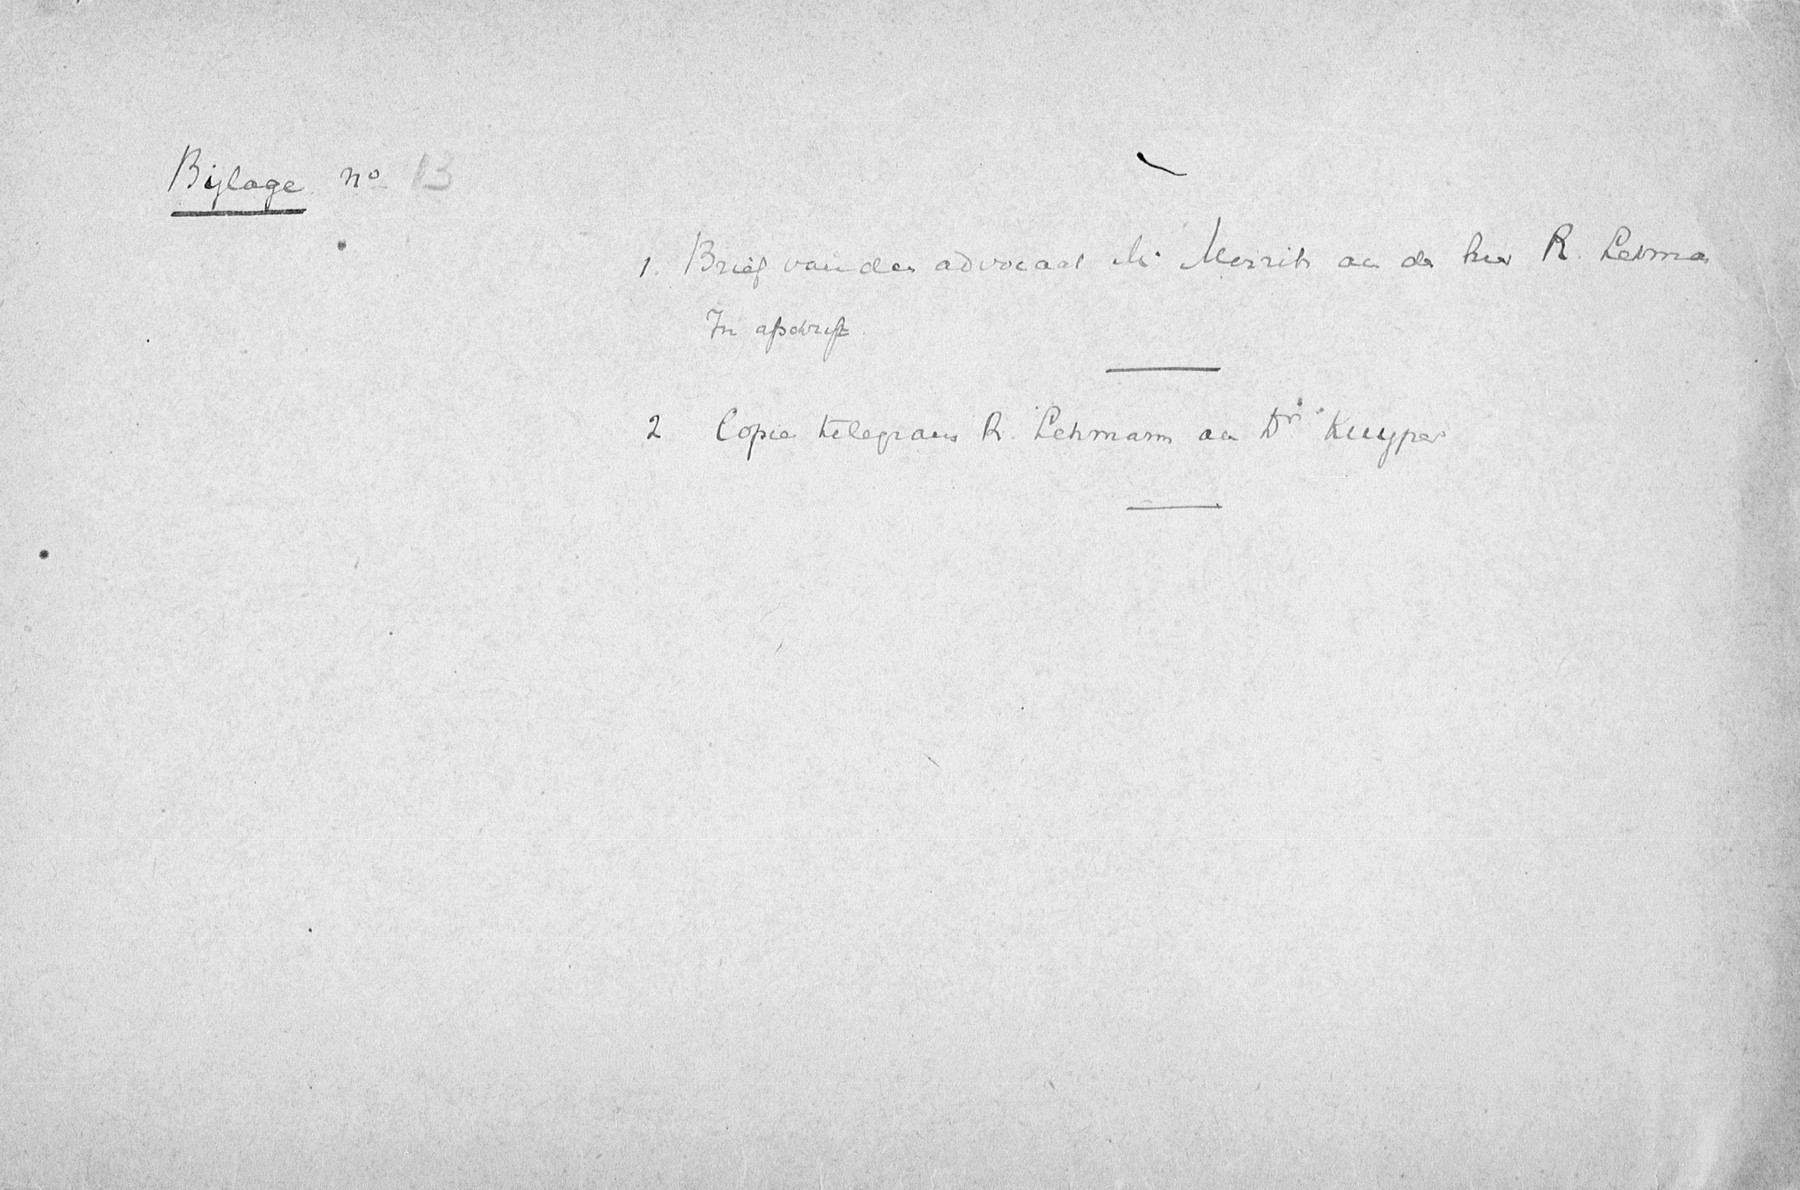 Bijlage no 13
1. Brief van den advocaat Mr Merrits aan de heer R. Lehman
In afschrift.
2 Copie telegram R. Lehmann aan Dr. Kuyper